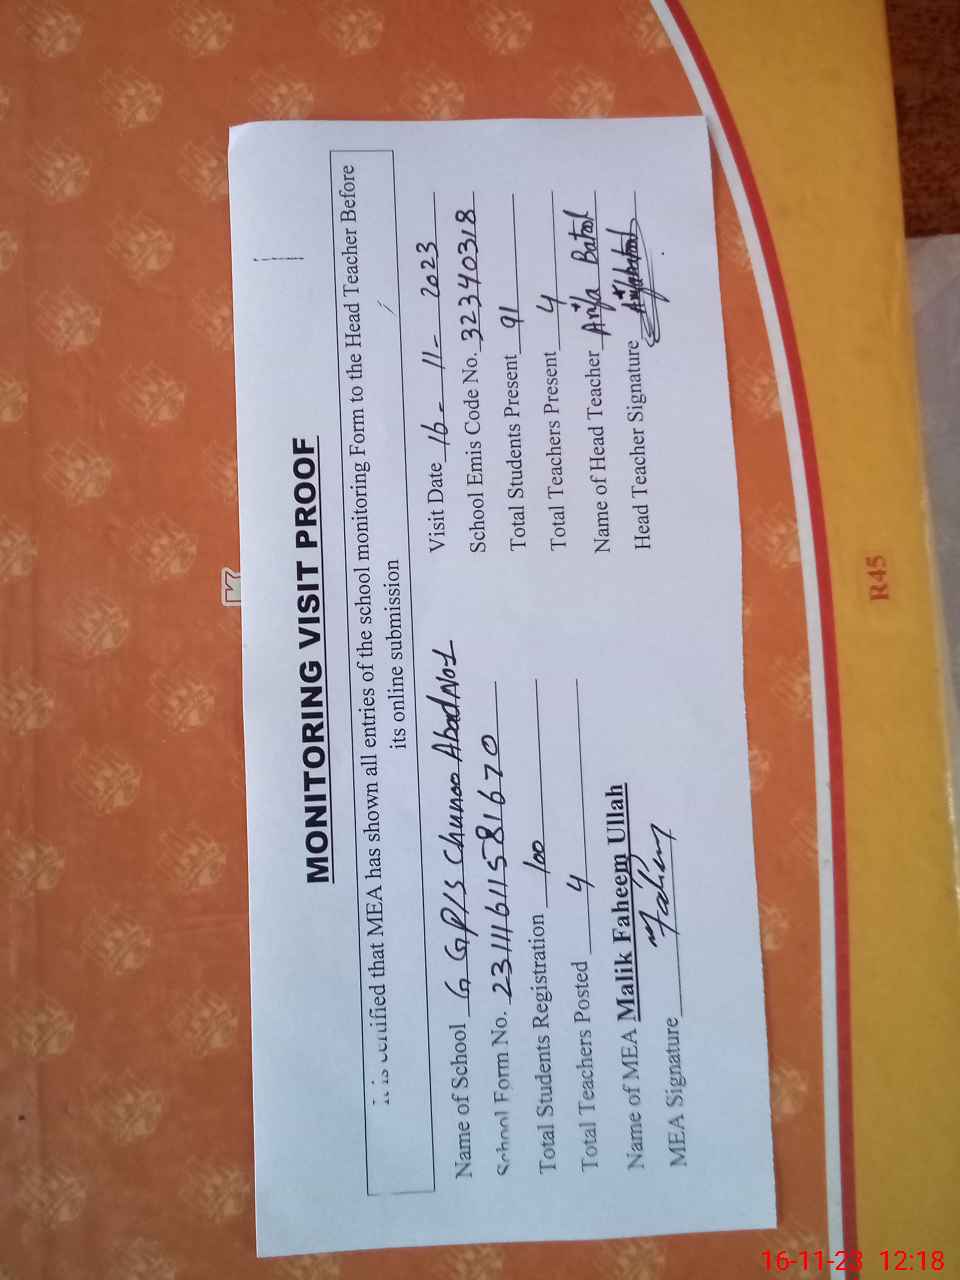 MONITORING VISIT PROOF
It is certified that MEA has shown all entries of the school monitoring Form to the Head Teacher Before
its online submission
Name of School G GP/S Chunoo Abad No1
Visit Date 16-11-2023
School Form No. 2311161158 1670
School Emis Code No. 32340318
Total Students Registration 100
Total Students Present 91
Total Teachers Posted 4
Total Teachers Present 4
Name of MEA Malik Faheem Ullah
Name of Head Teacher Arifa Batool
MEA Signature Fahim
Head Teacher Signature Arifabatool
R45
16-11-23 12:18